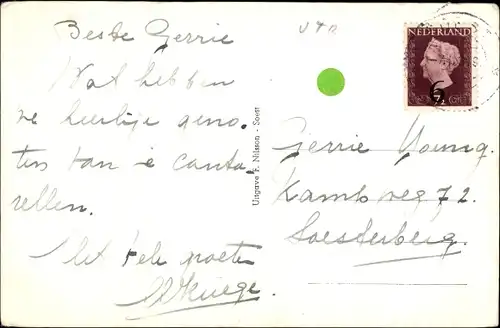 Beste Gerrie
Wat hebben
we heerlijge geno-
ten van e canta-
rellen.
Met vele groeten
Uitgave F. Nilsson - Soest
NEDERLAND
6
7½
Gerrie Young.
Kampweg 72.
Soesterberg.